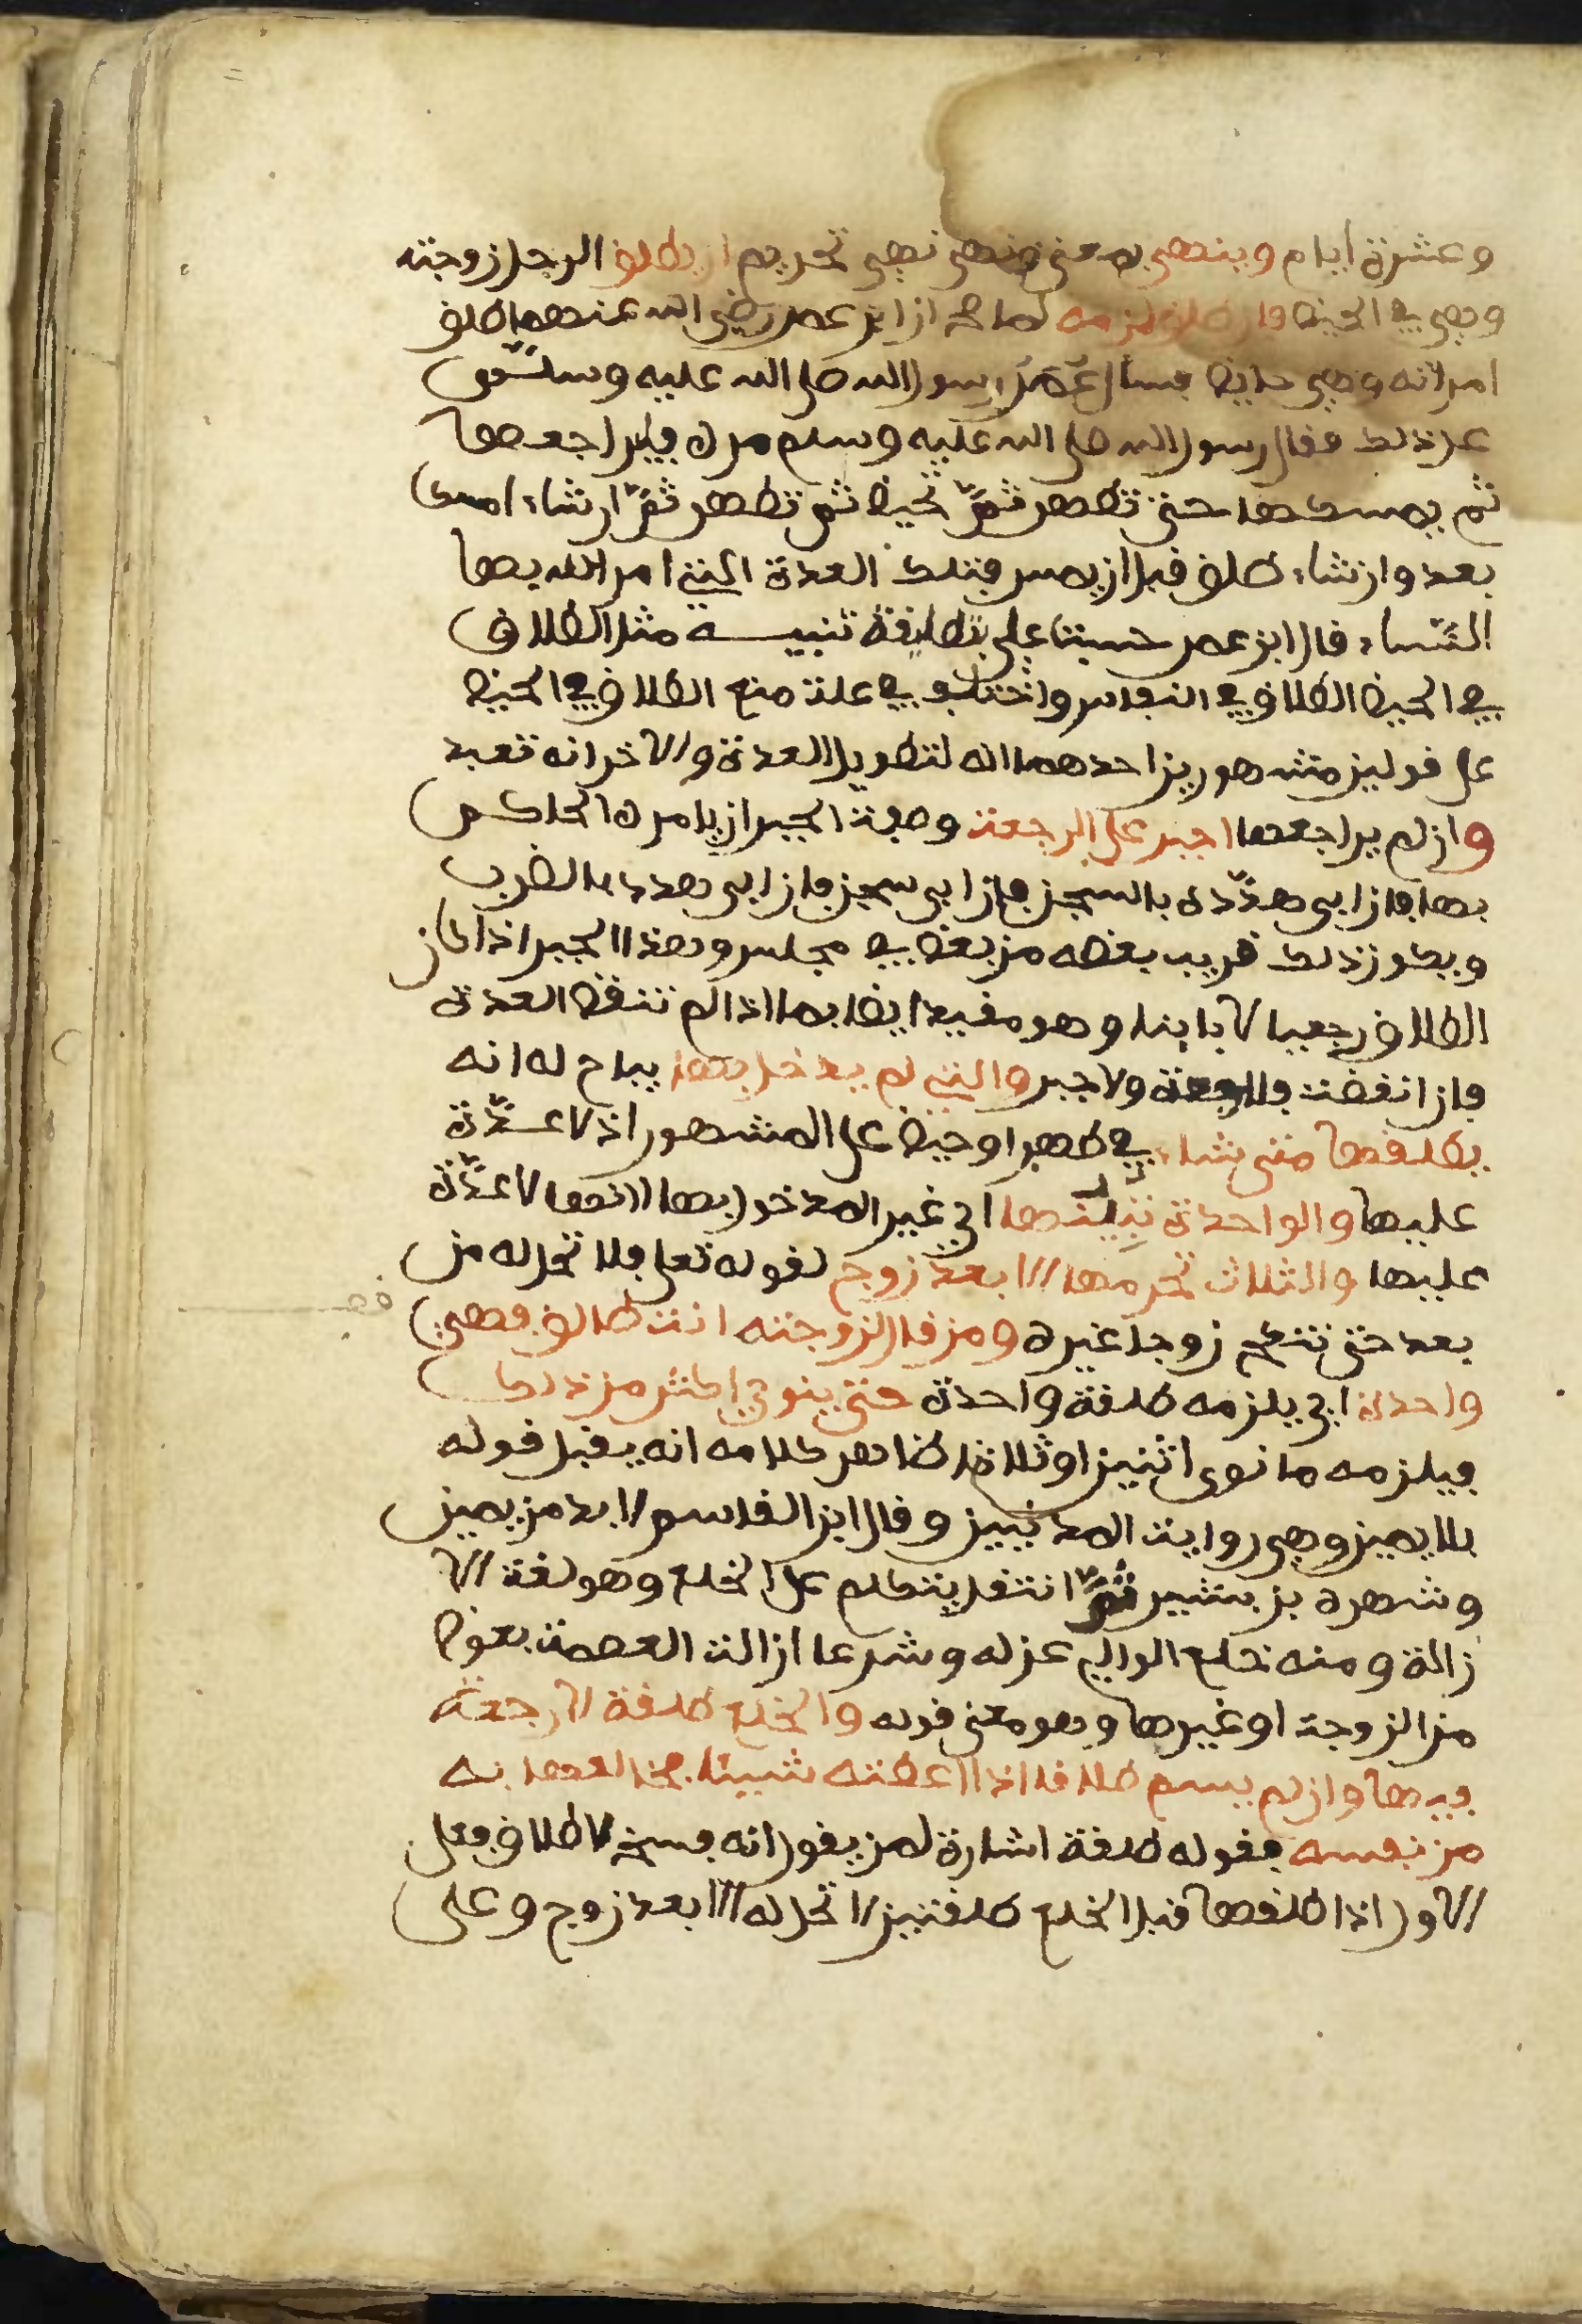 وعشرة أيام وينهى بمعنى نهي تحريم ان يطلق الرجل زوجته
وهي في الحيض فان طلق لزمه لما صح ان ابن عمر رضي الله عنهما طلق
امراته وهي حايض فسأل عمر رسول الله صلى الله عليه وسلم
عن ذلك فقال رسول الله صلى الله عليه وسلم مره فليراجعها
ثم يمسكها حتى تطهر ثم تحيض ثم تطهر ثم ان شاء امسك
بعد وان شاء طلق قبل ان يمس فتلك العدة التي امر الله بها
النساء قال ابن عمر حسبت علي بتطليقة تنبيه مثل الطلاق
في الحيض الطلاق في النفاس واختلف في علة منع الطلاق في الحيض
على قولين مشهورين احدهما انه لتطويل العدة والاخر انه تعبد
وان لم يراجعها اجبر على الرجعة وصفة الجبر ان يامره الحاكم
بها فان ابى هدّده بالسجن فان ابى سجن فان ابى هدده بالضرب
ويكون ذلك قريب بعضه من بعض في مجلس وهذا الجبر اذا كان
الطلاق رجعيا لا باينا وهو مفيد ايضا بما اذا لم تنقض العدة
فان انقضت فلا رجعة ولا جبر والتي لم يدخل بها يباح له انه
يطلقها متى شاء في طهر او حيض على المشهور اذ لا عدّة
عليها والواحدة تبينها اي غير المدخول بها لانها لا عدّة
عليها والثلاث تحرمها الا بعد زوج لقوله تعلى فلا تحل له من
بعد حتى تنكح زوجا غيره ومن قال لزوجته انت طالق فهي
واحدة اي يلزمه طلقة واحدة حتى ينوي اكثر من ذلك
فيلزمه ما نوى اثنين او ثلاثا ظاهر كلامه انه يقبل قوله
بلا يمين وهي رواية المدنيين وقال ابن القاسم لا بد من يمين
وشهره بن بشير ثمّ انتقل يتكلم على الخلع وهو لغة الا
زالة ومنه خلع الوالي عزله وشرعا ازالة العصمة بعوض
من الزوجة او غيرها وهو معنى قوله والخلع طلقة لا رجعة
فيها وان لم يسم طلاقا اذا اعطته شيئا فخلعها به
من نفسه فقوله طلقة اشارة لمن يقول انه فسخ لا طلاق فعلى
الاول اذا طلقها قبل الخلع طلقتين لا تحل له الا بعد زوج وعلى